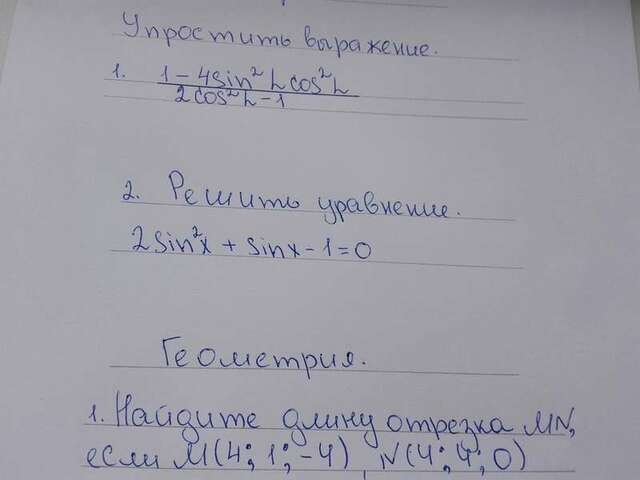 Упростить выражение.
1. 1 - 4sin²α cos²α
2cos²α - 1
2. Решить уравнение.
2sin²x + sinx - 1 = 0
Геометрия.
1. Найдите длину отрезка MN,
если M(4; 1; -4), N(4; 4; 0)